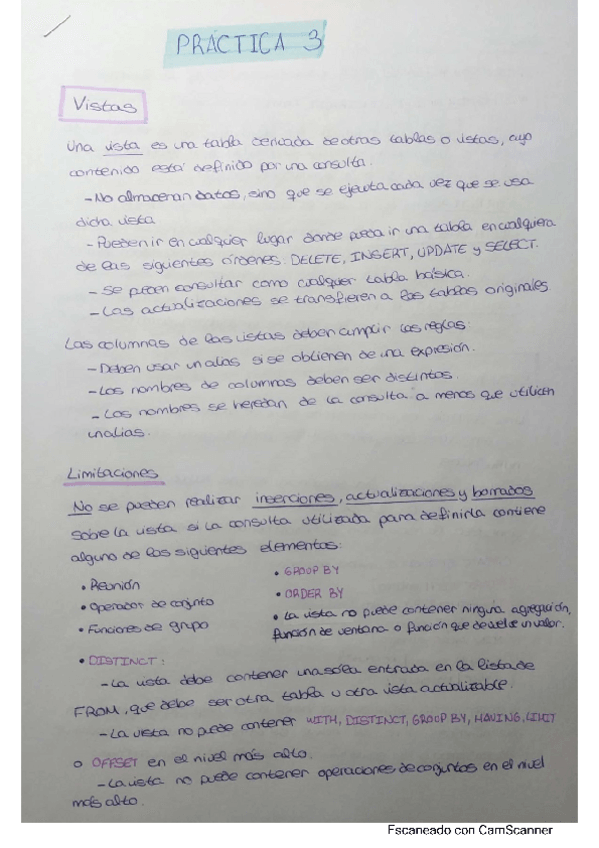 PRÁCTICA 3
Vistas
Una vista es una tabla derivada de otras tablas o vistas, cuyo
contenido está definido por una consulta.
- No almacenan datos, sino que se ejecuta cada vez que se usa
dicha vista
- Pueden ir en cualquier lugar donde pueda ir una tabla en cualquiera
de las siguientes órdenes: DELETE, INSERT, UPDATE y SELECT.
- Se pueden consultar como cualquier tabla básica.
- Las actualizaciones se transfieren a las tablas originales.
Las columnas de las vistas deben cumplir las reglas:
- Deben usar un alias si se obtienen de una expresión.
- Los nombres de columnas deben ser distintos.
- Los nombres se heredan de la consulta a menos que utilicen
un alias.
Limitaciones
No se pueden realizar inserciones, actualizaciones y borrados
sobre la vista si la consulta utilizada para definirla contiene
alguno de los siguientes elementos:
• Reunión
• Operador de conjunto
• Funciones de grupo
• GROUP BY
• ORDER BY
• La vista no puede contener ninguna agregación,
función de ventana o función que devuelve un valor.
• DISTINCT:
- La vista debe contener una sola entrada en la lista de
FROM, que debe ser otra tabla u otra vista actualizable.
- La vista no puede contener WITH, DISTINCT, GROUP BY, HAVING, LIMIT
o OFFSET en el nivel más alto.
- La vista no puede contener operaciones de conjuntos en el nivel
más alto.
Escaneado con CamScanner